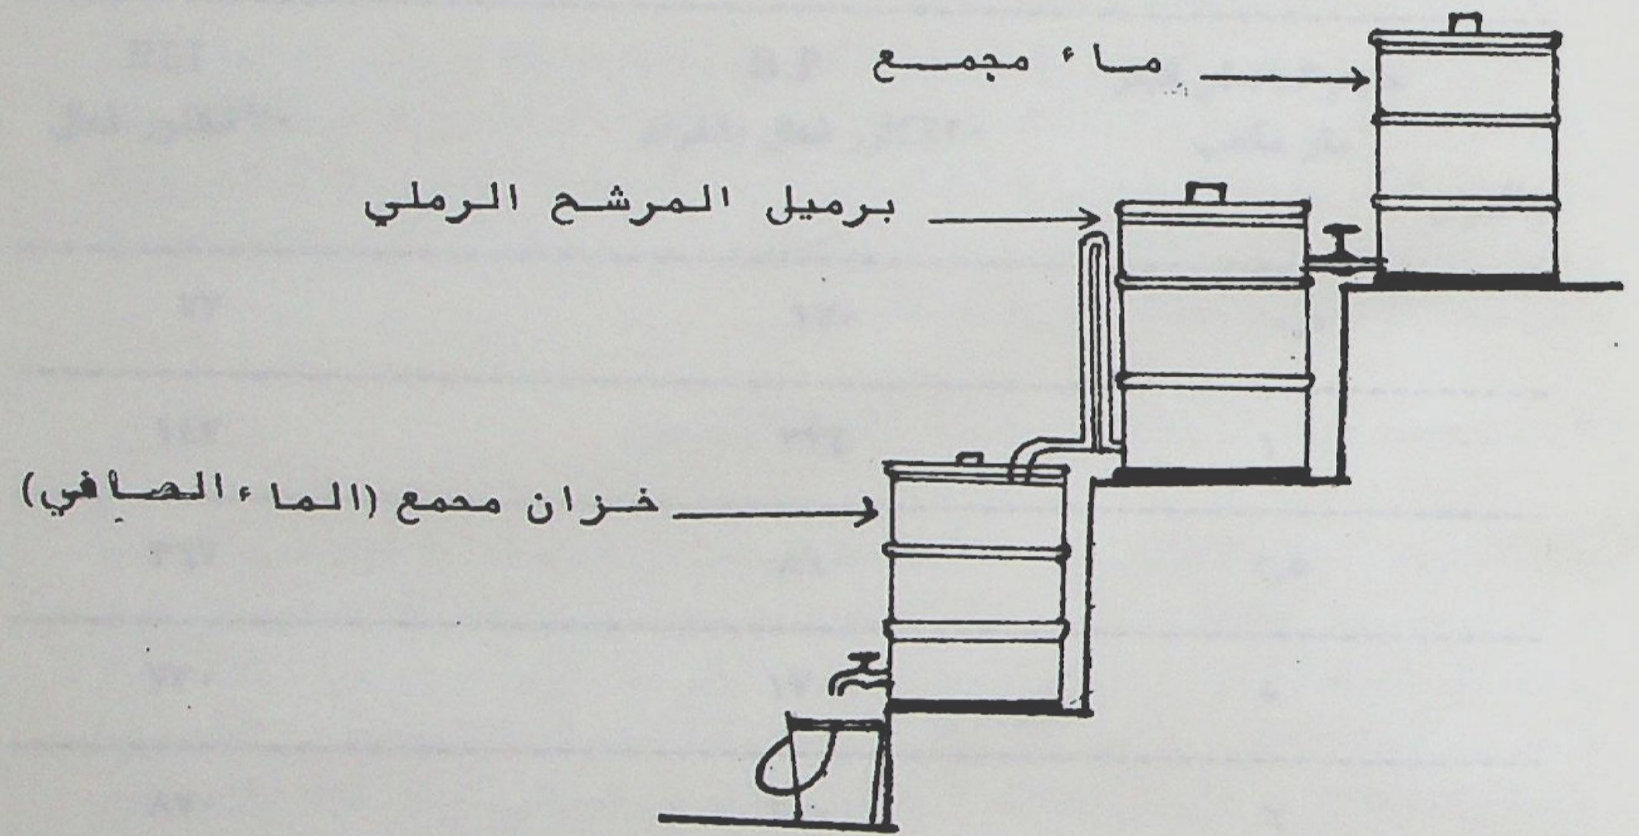 ماء مجمع
برميل المرشح الرملي
خزان محمع (الماء الصافي)